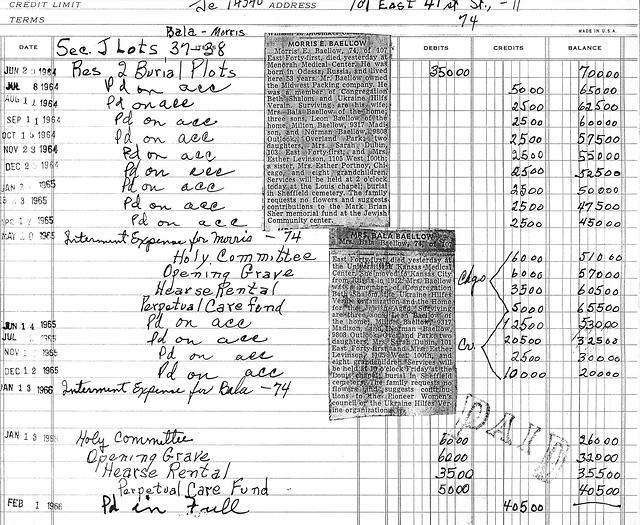 CREDIT LIMIT
ADDRESS 107 East 41st St., -11
TERMS 74
Bala - Morris
MADE IN U.S.A.
DATE Sec. J Lots 37-38 DEBITS CREDITS BALANCE
JUN 2 1964 Res 2 Burial Plots 35000 70000
JUL 8 1964 Pd on acc 5000 65000
AUG 1 1964 Pd on acc 2500 62500
SEP 1 1 1964 Pd on acc 2500 60000
OCT 1 1964 Pd on acc 2500 57500
NOV 23 1964 Pd on acc 2500 55000
DEC 2 1964 Pd on acc 2500 52500
JAN 2 1965 Pd on acc 2500 50000
3 1965 Pd on acc 2500 47500
APR 1 1965 Pd on acc 2500 45000
MAY 1965 Interment Expense for Morris -74
Holy Committee 6000 51000
Opening Grave Chgs 6000 57000
Hearse Rental 3500 60500
Perpetual Care Fund 5000 65500
JUN 1 4 1965 Pd on acc 12500 53000
JUL 1965 Pd on acc Cr. 20500 32500
NOV 1 1965 Pd on acc 2500 30000
DEC 1 2 1965 Pd on acc 10000 20000
JAN 1 3 1966 Interment Expense for Bala -74
PAID
JAN 1 3 1966 Holy Committee 6000 26000
Opening Grave 6000 32000
Hearse Rental 3500 35500
Perpetual Care Fund 5000 40500
FEB 1 1966 Pd in Full 40500
MORRIS E. BAELLOW
Morris E. Baellow, 74, of 107
East Forty-first, died yesterday at
Menorah Medical Center. He was
born in Odessa, Russia, and lived
here 53 years. Mr. Baellow owned
the Midwest Packing company. He
was a member of Congregation
Beth Shalom and Ukraine Hilfs
Verein. Surviving are his wife,
Mrs. Bala Baellow of the home;
three sons, Leon Baellow of the
home, Milton Baellow, 9317 Madi-
son, and Norman Baellow, 9808
Outlook, Overland Park; two
daughters, Mrs. Sarah Dubin,
103 East Forty-first, and Mrs.
Esther Levinson, 1105 West 100th;
a sister, Mrs. Esther Portnoy, Chi-
cago, and eight grandchildren.
Services will be held at 2 o'clock
today at the Louis chapel; burial
in Sheffield cemetery. The family
requests no flowers and suggests
contributions to the Mark Brian
Sher memorial fund at the Jewish
Community center.
MRS. BALA BAELLOW
Mrs. Bala Baellow, 74, of 107
East Forty-first died yesterday at
the University of Kansas Medical
Center. She moved to Kansas City
from
was a member of Congregation
Beth Shalom, the Ukraine Hilfs
Verein organization and the Home
for the Aging. Surviving
are three sons, Leon Baellow of
the home, Milton Baellow, 9317
Madison, and Norman Baellow,
9808 Outlook, Overland Park; two
daughters, Mrs. Sarah Dubin, 103
East Forty-first and Mrs. Esther
Levinson, 1105 West 100th, and
eight grandchildren. Services will
be held at 10 o'clock Friday at the
Louis chapel; burial in Sheffield
cemetery. The family requests no
flowers, and suggests contribu-
tions to the Pioneer Women's
council of the Ukraine Hilfs Ver-
ine organization.